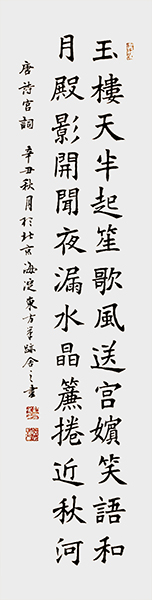 玉樓天半起笙歌風送宮嬪笑語和
月殿影開聞夜漏水晶簾捲近秋河
唐詩宮詞 辛丑秋月於北京海淀東方